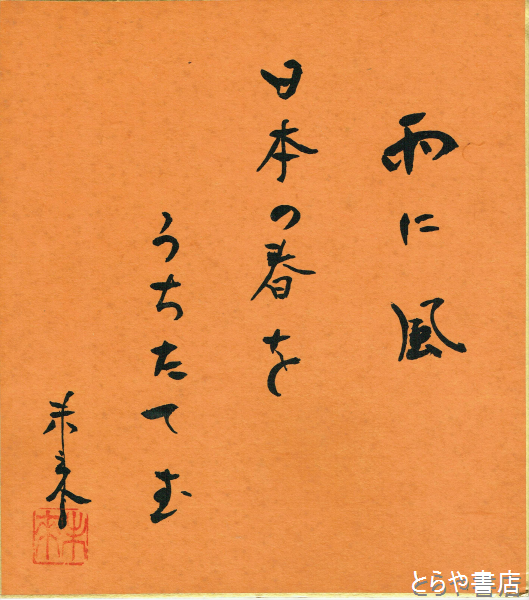 雨に風
日本の春を
うちたてむ
未来
未来
とらや書店